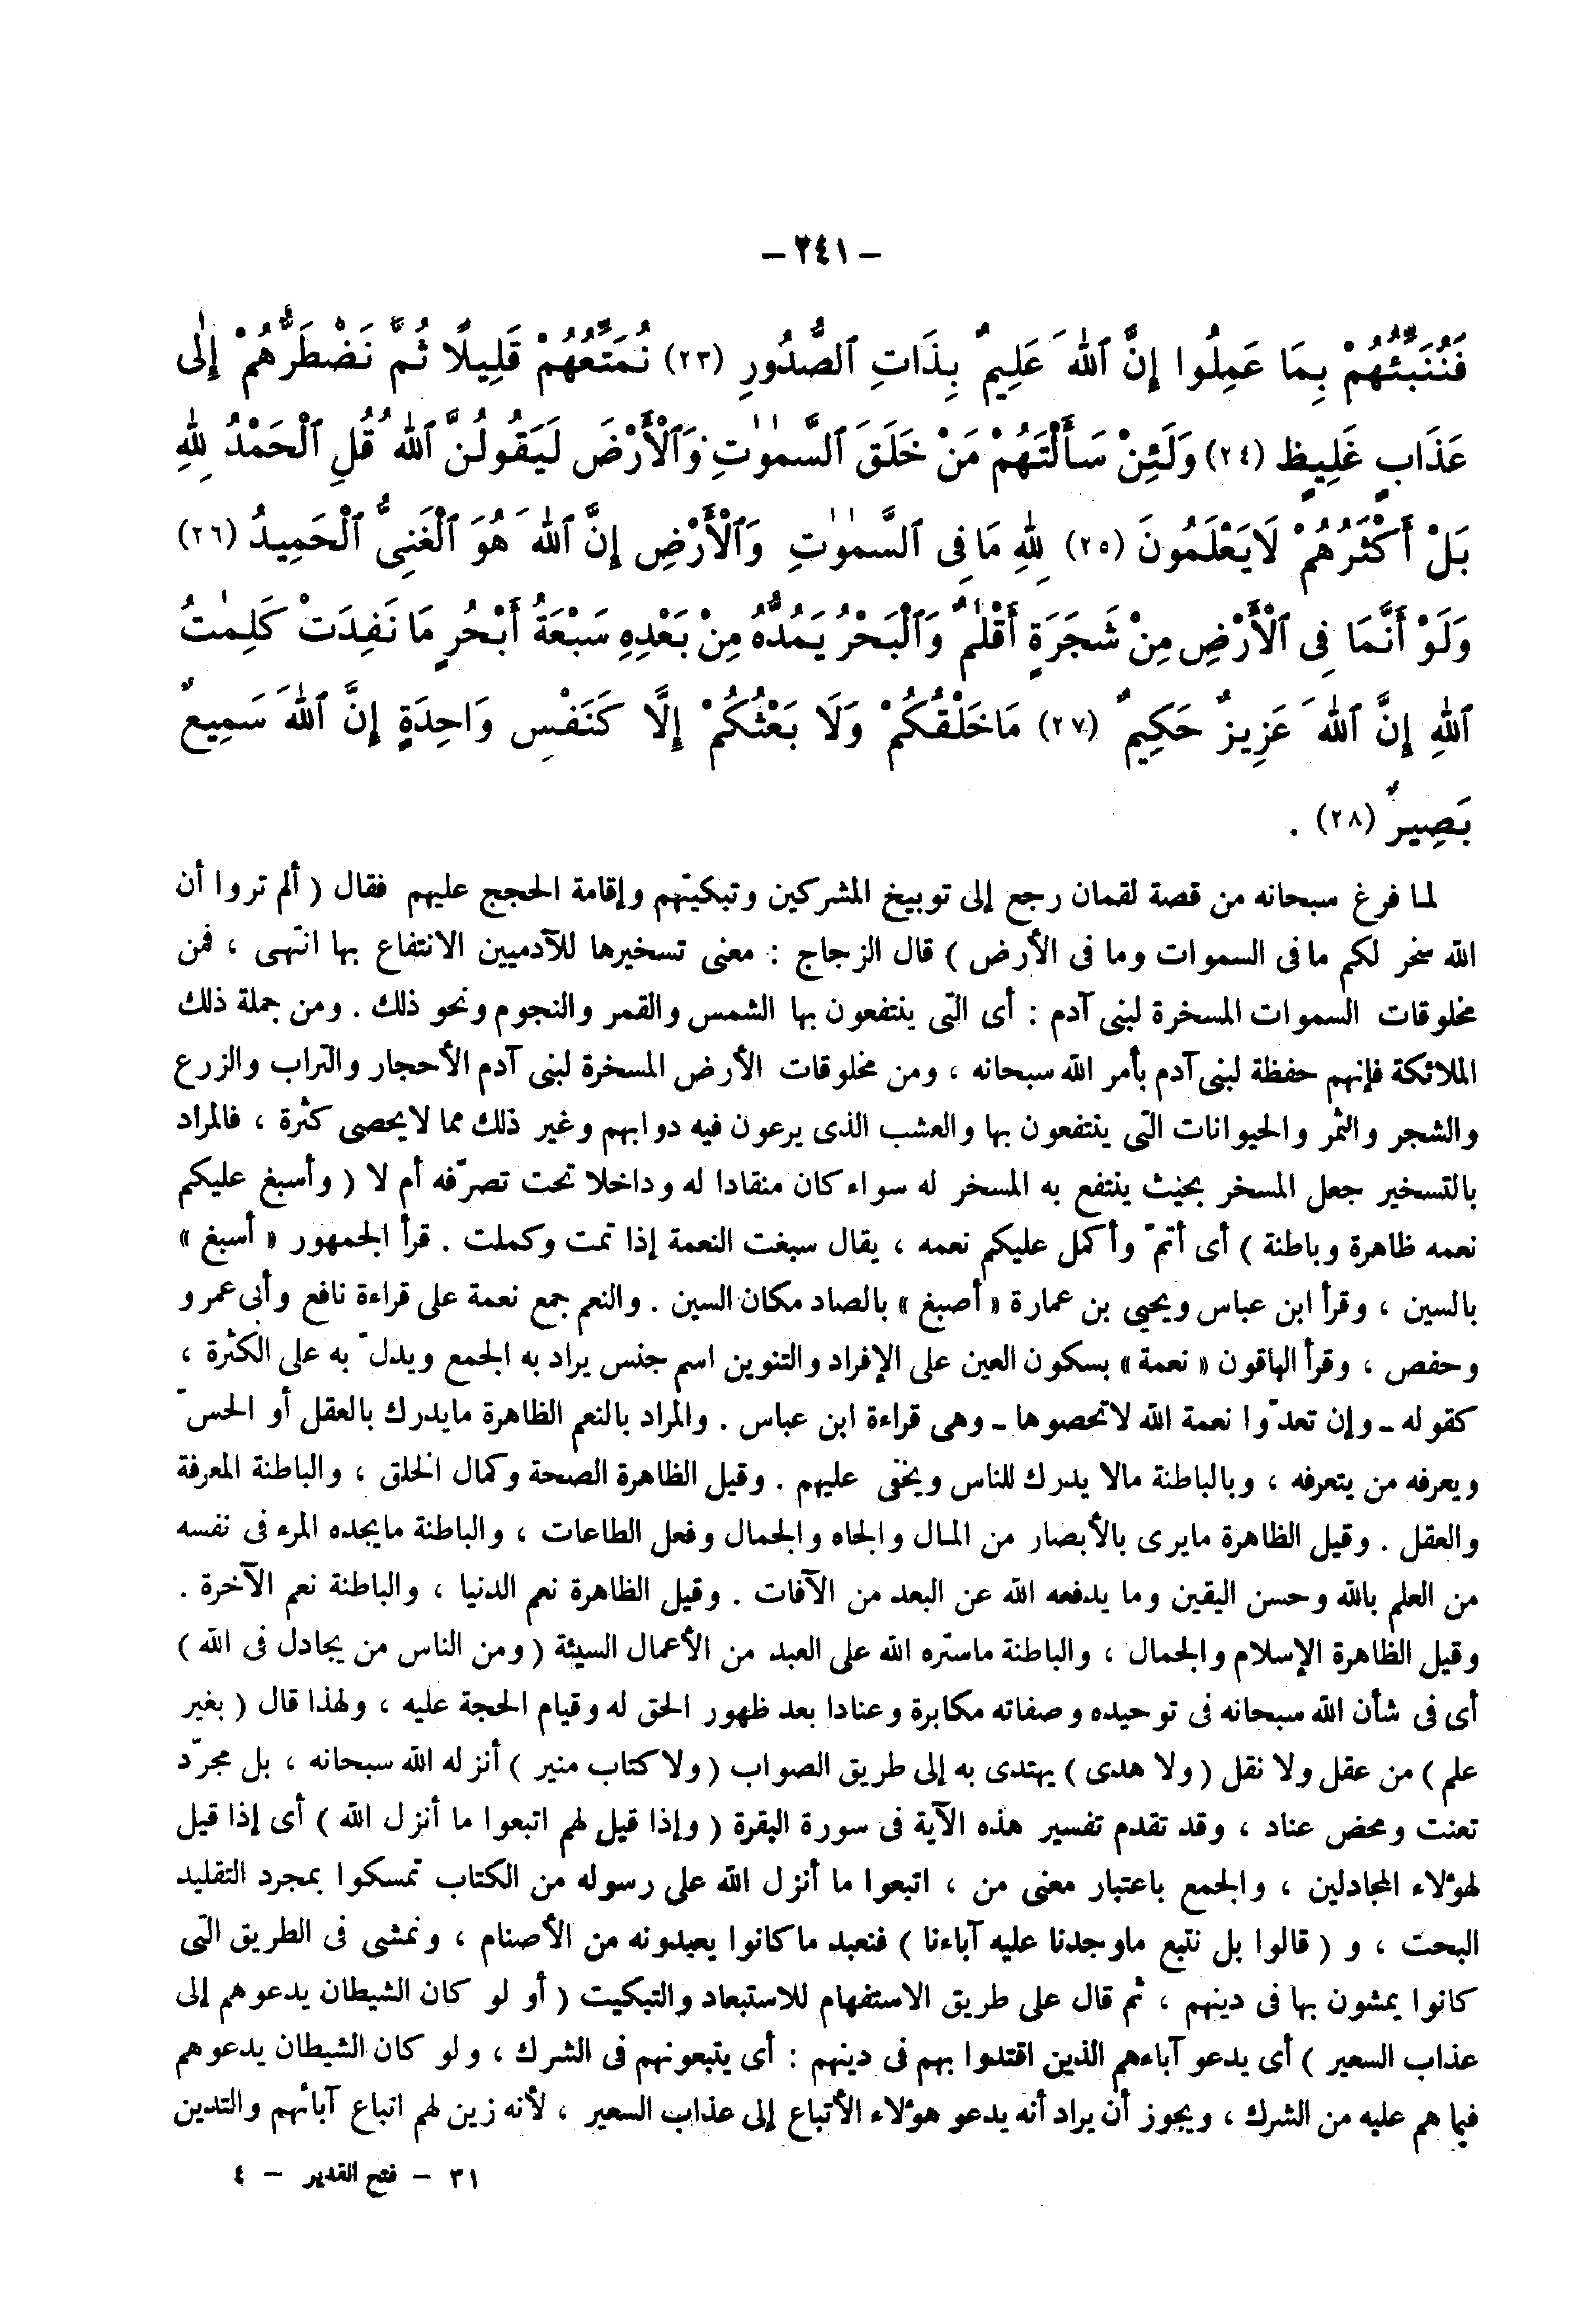 - ٢٤١ -
فَنُنَبِّئُهُمْ بِمَا عَمِلُوا إِنَّ ٱللهَ عَلِيمٌ بِذَاتِ ٱلصُّدُورِ (٢٣) نُمَتِّعُهُمْ قَلِيلًا ثُمَّ نَضْطَرُّهُمْ إِلَىٰ
عَذَابٍ غَلِيظٍ (٢٤) وَلَئِنْ سَأَلْتَهُمْ مَنْ خَلَقَ ٱلسَّمٰوٰتِ وَٱلْأَرْضَ لَيَقُولُنَّ ٱللهُ قُلِ ٱلْحَمْدُ لِلهِ
بَلْ أَكْثَرُهُمْ لَايَعْلَمُونَ (٢٥) لِلهِ مَا فِى ٱلسَّمٰوٰتِ وَٱلْأَرْضِ إِنَّ ٱللهَ هُوَ ٱلْغَنِىُّ ٱلْحَمِيدُ (٢٦)
وَلَوْ أَنَّمَا فِى ٱلْأَرْضِ مِنْ شَجَرَةٍ أَقْلٰمٌ وَٱلْبَحْرُ يَمُدُّهُ مِنْ بَعْدِهِ سَبْعَةُ أَبْحُرٍ مَا نَفِدَتْ كَلِمٰتُ
ٱللهِ إِنَّ ٱللهَ عَزِيزٌ حَكِيمٌ (٢٧) مَاخَلْقُكُمْ وَلَا بَعْثُكُمْ إِلَّا كَنَفْسٍ وَاحِدَةٍ إِنَّ ٱللهَ سَمِيعٌ
بَصِيرٌ (٢٨) .
لما فرغ سبحانه من قصة لقمان رجع إلى توبيخ المشركين وتبكيتهم وإقامة الحجج عليهم فقال ( ألم تروا أن
الله سخر لكم ما فى السموات وما فى الأرض ) قال الزجاج : معنى تسخيرها للآدميين الانتفاع بها انتهى ، فمن
مخلوقات السموات المسخرة لبنى آدم : أى التى ينتفعون بها الشمس والقمر والنجوم ونحو ذلك . ومن جملة ذلك
الملائكة فإنهم حفظة لبنى آدم بأمر الله سبحانه ، ومن مخلوقات الأرض المسخرة لبنى آدم الأحجار والتراب والزرع
والشجر والثمر والحيوانات التى ينتفعون بها والعشب الذى يرعون فيه دوابهم وغير ذلك مما لايحصى كثرة ، فالمراد
بالتسخير جعل المسخر بحيث ينتفع به المسخر له سواء كان منقادا له وداخلا تحت تصرّفه أم لا ( وأسبغ عليكم
نعمه ظاهرة وباطنة ) أى أتمّ وأكمل عليكم نعمه ، يقال سبغت النعمة إذا تمت وكملت . قرأ الجمهور « أسبغ »
بالسين ، وقرأ ابن عباس ويحيى بن عمارة « أصبغ » بالصاد مكان السين . والنعم جمع نعمة على قراءة نافع وأبى عمرو
وحفص ، وقرأ الباقون « نعمة » بسكون العين على الإفراد والتنوين اسم جنس يراد به الجمع ويدلّ به على الكثرة ،
كقوله ـ وإن تعدّوا نعمة الله لاتحصوها ـ وهى قراءة ابن عباس . والمراد بالنعم الظاهرة مايدرك بالعقل أو الحسّ
ويعرفه من يتعرفه ، وبالباطنة مالا يدرك للناس ويخفى عليهم . وقيل الظاهرة الصحة وكمال الخلق ، والباطنة المعرفة
والعقل . وقيل الظاهرة مايرى بالأبصار من المال والجاه والجمال وفعل الطاعات ، والباطنة مايجده المرء فى نفسه
من العلم بالله وحسن اليقين وما يدفعه الله عن البعد من الآفات . وقيل الظاهرة نعم الدنيا ، والباطنة نعم الآخرة .
وقيل الظاهرة الإسلام والجمال ، والباطنة ماستره الله على العبد من الأعمال السيئة ( ومن الناس من يجادل فى الله )
أى فى شأن الله سبحانه فى توحيده وصفاته مكابرة وعنادا بعد ظهور الحق له وقيام الحجة عليه ، ولهذا قال ( بغير
علم ) من عقل ولا نقل ( ولا هدى ) يهتدى به إلى طريق الصواب ( ولا كتاب منير ) أنزله الله سبحانه ، بل مجرّد
تعنت ومحض عناد ، وقد تقدم تفسير هذه الآية فى سورة البقرة ( وإذا قيل لهم اتبعوا ما أنزل الله ) أى إذا قيل
لهؤلاء المجادلين ، والجمع باعتبار معنى من ، اتبعوا ما أنزل الله على رسوله من الكتاب تمسكوا بمجرد التقليد
البحت ، و ( قالوا بل نتبع ماوجدنا عليه آباءنا ) فنعبد ماكانوا يعبدونه من الأصنام ، ونمشى فى الطريق التى
كانوا يمشون بها فى دينهم ، ثم قال على طريق الاستفهام للاستبعاد والتبكيت ( أو لو كان الشيطان يدعوهم إلى
عذاب السعير ) أى يدعو آباءهم الذين اقتدوا بهم فى دينهم : أى يتبعونهم فى الشرك ، ولو كان الشيطان يدعوهم
فيما هم عليه من الشرك ، ويجوز أن يراد أنه يدعو هؤلاء الأتباع إلى عذاب السعير ، لأنه زين لهم اتباع آبائهم والتدين
٣١ - فتح القدير - ٤